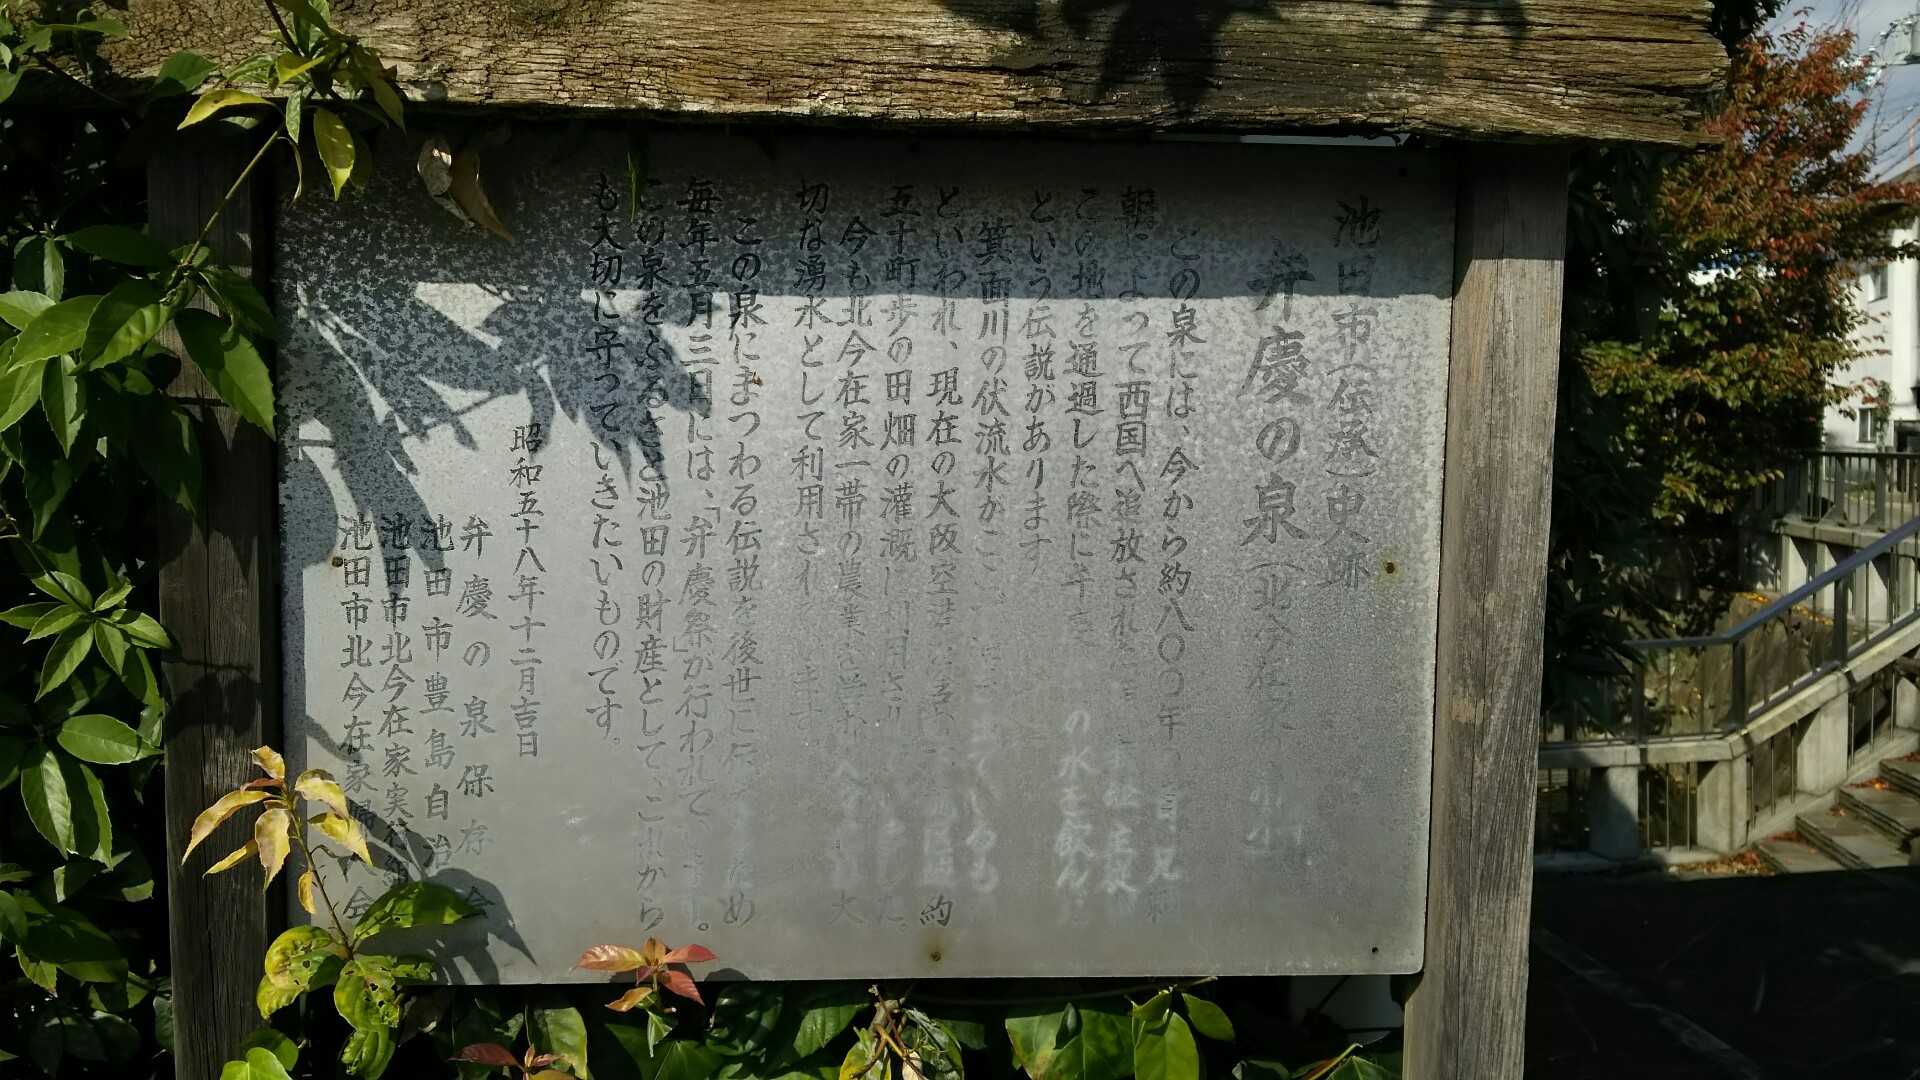 池田市(伝承)史跡
弁慶の泉(北今在家
この泉には、今から約八〇〇年 首兄 頼
朝によって西国へ追放され
この地を通過した際に の水を飲んだ
という伝説があります
箕面川の伏流水が ている
といわれ、現在の大阪空港 約
五十町歩の田畑の灌漑に利用され ました。
今も北今在家一帯の農業を営む 大
切な湧水として利用され ます。
この泉にまつわる伝説を後世に伝 ため
毎年五月三日には、「弁慶祭」が行われています。
この泉をふるさと池田の財産として、これから
も大切に守っていきたいものです。
昭和五十八年十二月吉日
弁慶の泉保存会
池田市豊島自治会
池田市北今在家実行組
池田市北今在家婦人会